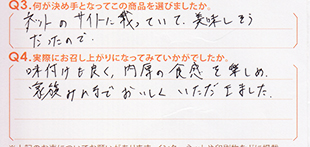 Q3.何が決め手となってこの商品を選びましたか。
ネットのサイトに載っていて、美味しそう
だったので。
Q4.実際にお召し上がりになってみていかがでしたか。
味付けも良く、肉厚の食感を楽しめ、
家族みんなでおいしくいただきました。